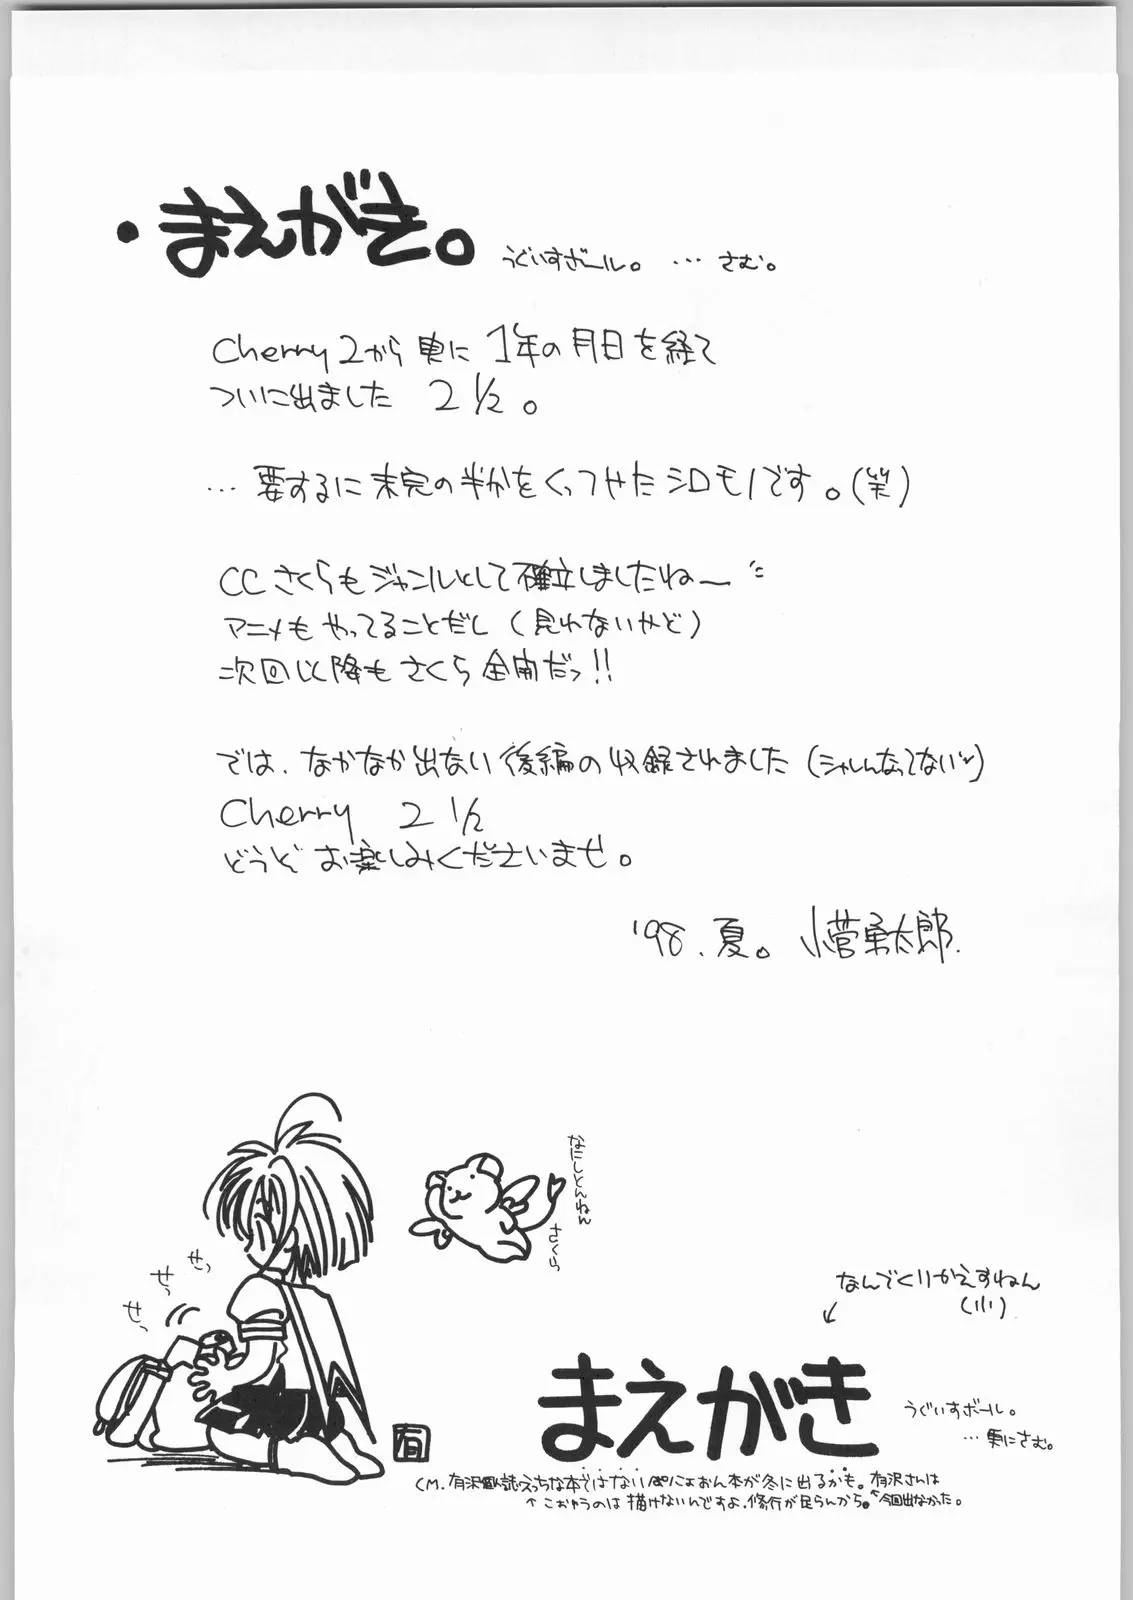 ・まえがき。
うぐいすボール。 … さむ。
Cherry2から更に1年の月日を経て
ついに出ました 2 1/2。
… 要するに未完の半かをくっつやたシロモノです。(笑)
CCさくらもジャンルとして確立しましたねー
アニメもやってることだし(見れないやど)
次回以降もさくら全開だっ!!
では、なかなか出ない後編の収録されました(シャレんなってない)
Cherry 2 1/2
どうぞお楽しみくださいませ。
'98.夏。 小菅勇太郎.
なにしとんねん
さくら
せっ
せっ
せっ
なんでくりかえすねん
(小)
まえがき
うぐいすボール。
… 更にさむ。
有
CM.有沢個人誌えっちな本ではないぱにょおん本が冬に出るかも。有沢さんは
↑こおゆうのは描けないんですよ、修行が足らんから。↑今回出なかった。